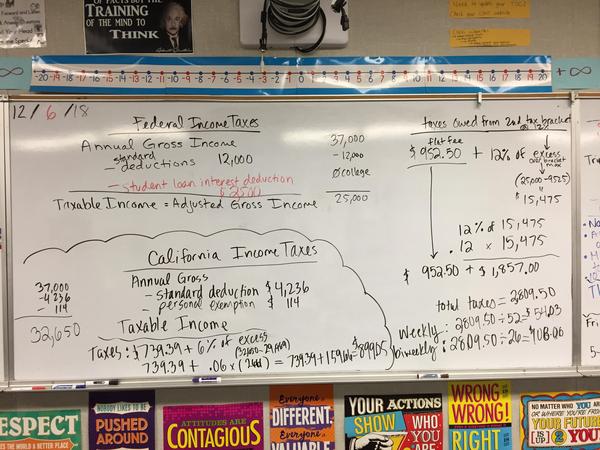 OF FACTS BUT THE
TRAINING
OF THE MIND TO
THINK
Need to update your
Check your
-20 -19 -18 -17 -16 -15 -14 -13 -12 -11 -10 -9 -8 -7 -6 -5 -4 -3 -2 -1 0 1 2 3 4 5 6 7 8 9 10 11 12 13 14 15 16 17 18 19 20
∞
+∞
12/6/18
Federal Income Taxes
Annual Gross Income 37,000
standard
- deductions 12,000 - 12,000
Ø college
- student loan interest deduction
$2500
Taxable Income = Adjusted Gross Income 25,000
taxes owed from 2nd tax bracket
@ 12%
flat fee
$ 952.50 + 12% of excess
over bracket
max
(25,000 - 9525)
"
$ 15,475
12% of 15,475
.12 x 15,475
$ 952.50 + $1,857.00
total taxes = 2809.50
weekly: 2809.50 ÷ 52 = $54.03
biweekly: 2809.50 ÷ 26 = $108.06
California Income Taxes
Annual Gross
- standard deduction $4,236
- personal exemption $ 114
Taxable Income
37,000
- 4,236
- 114
32,650
Taxes: $739.39 + 6% of excess
739.39 + .06 x
RESPECT
MAKES THE WORLD A BETTER PLACE
NOBODY LIKES TO BE
PUSHED
AROUND
ATTITUDES ARE
CONTAGIOUS
Everyone is
DIFFERENT.
Everyone is
VALUABLE
YOUR ACTIONS
SHOW WHO
YOU
ARE
WRONG IS
WRONG!
RIGHT
NO MATTER WHO YOU ARE
OR WHERE YOU'RE FROM
YOUR FUTURE
IS UP 2 YOU